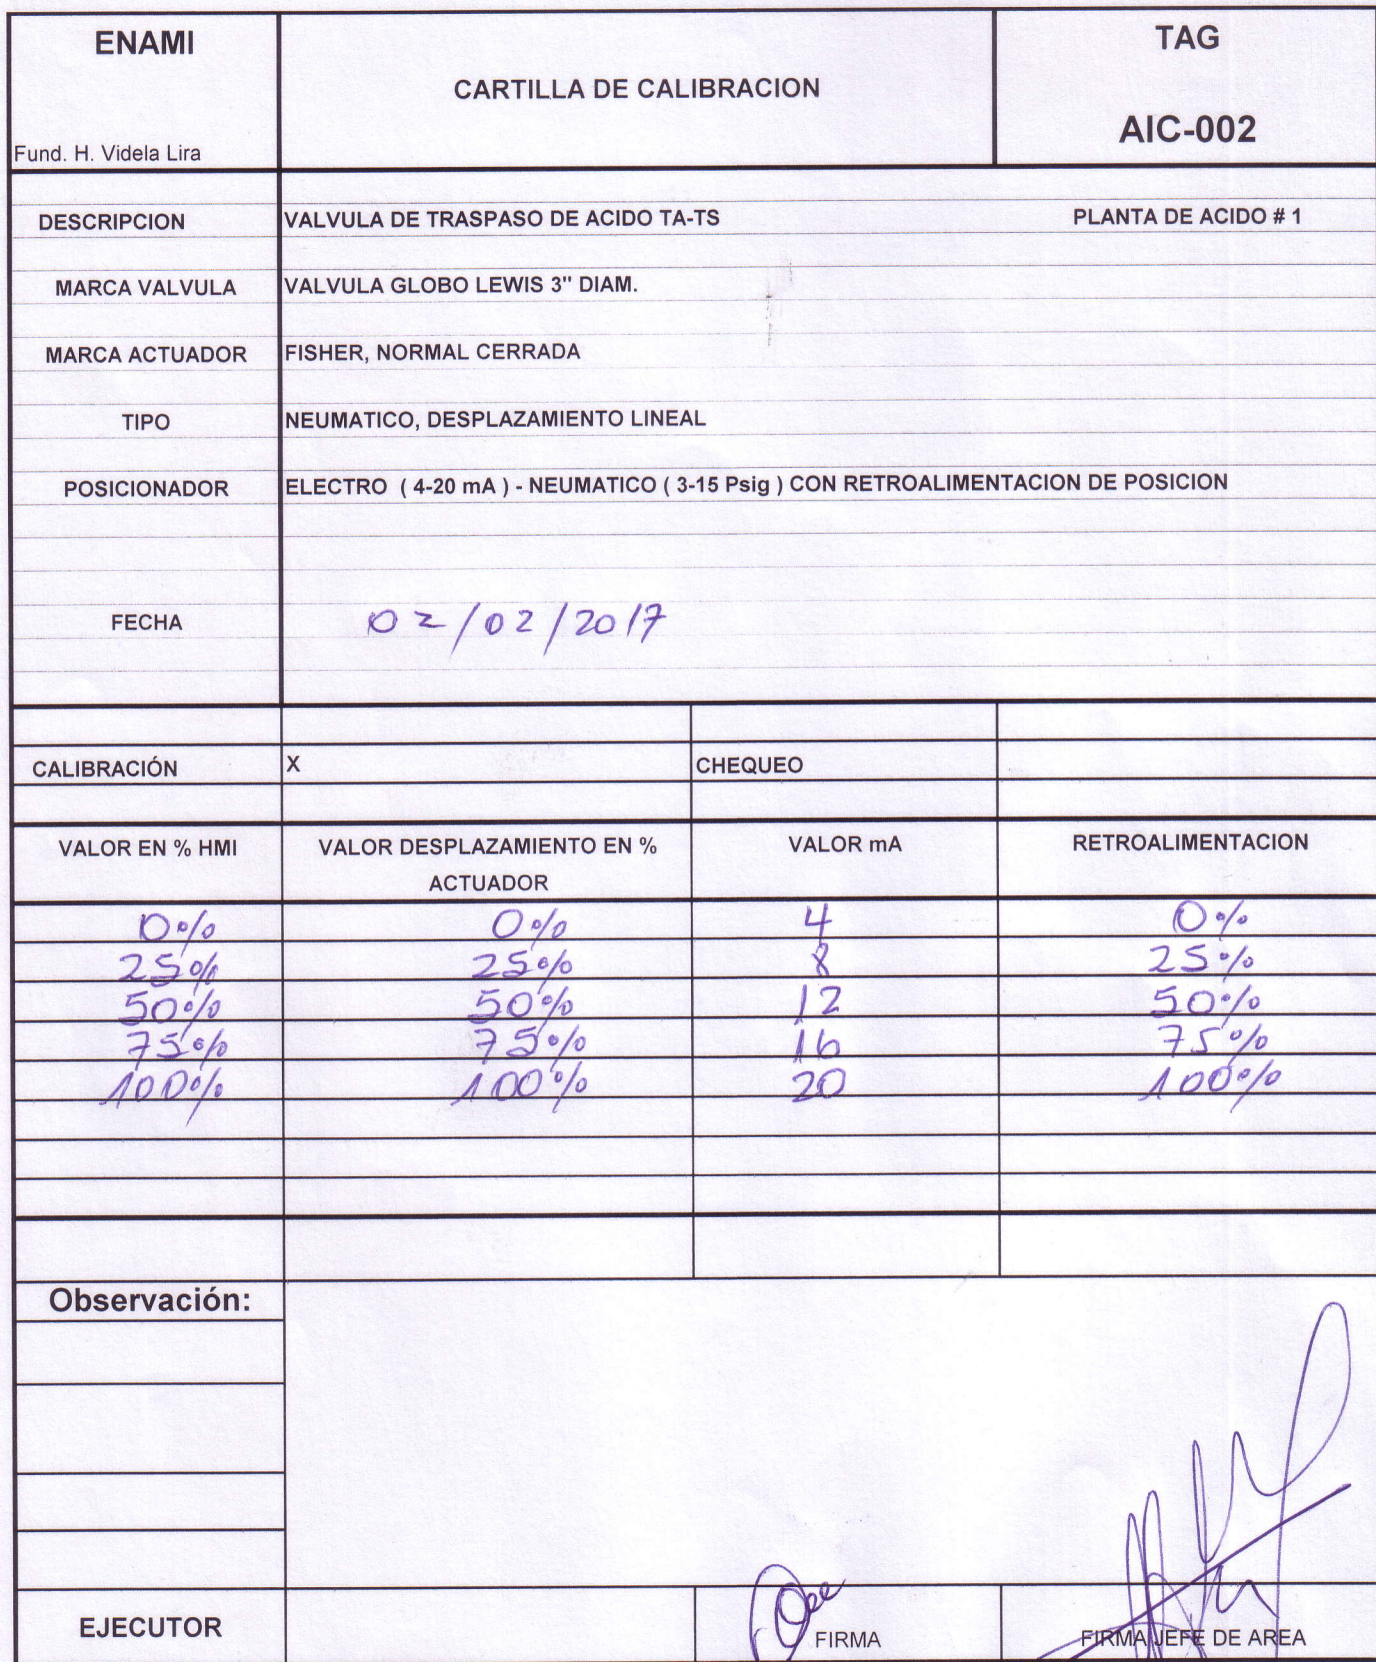 ENAMI
Fund. H. Videla Lira
CARTILLA DE CALIBRACION
TAG
AIC-002
DESCRIPCION VALVULA DE TRASPASO DE ACIDO TA-TS PLANTA DE ACIDO # 1
MARCA VALVULA VALVULA GLOBO LEWIS 3" DIAM.
MARCA ACTUADOR FISHER, NORMAL CERRADA
TIPO NEUMATICO, DESPLAZAMIENTO LINEAL
POSICIONADOR ELECTRO ( 4-20 mA ) - NEUMATICO ( 3-15 Psig ) CON RETROALIMENTACION DE POSICION
FECHA 02/02/2017
CALIBRACIÓN X CHEQUEO
VALOR EN % HMI VALOR DESPLAZAMIENTO EN % ACTUADOR VALOR mA RETROALIMENTACION
0% 0% 4 0%
25% 25% 8 25%
50% 50% 12 50%
75% 75% 16 75%
100% 100% 20 100%
Observación:
EJECUTOR FIRMA FIRMA JEFE DE AREA